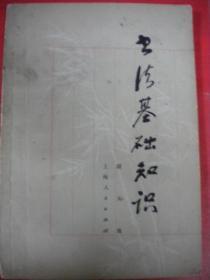 书法基础知识
上海人民出版社